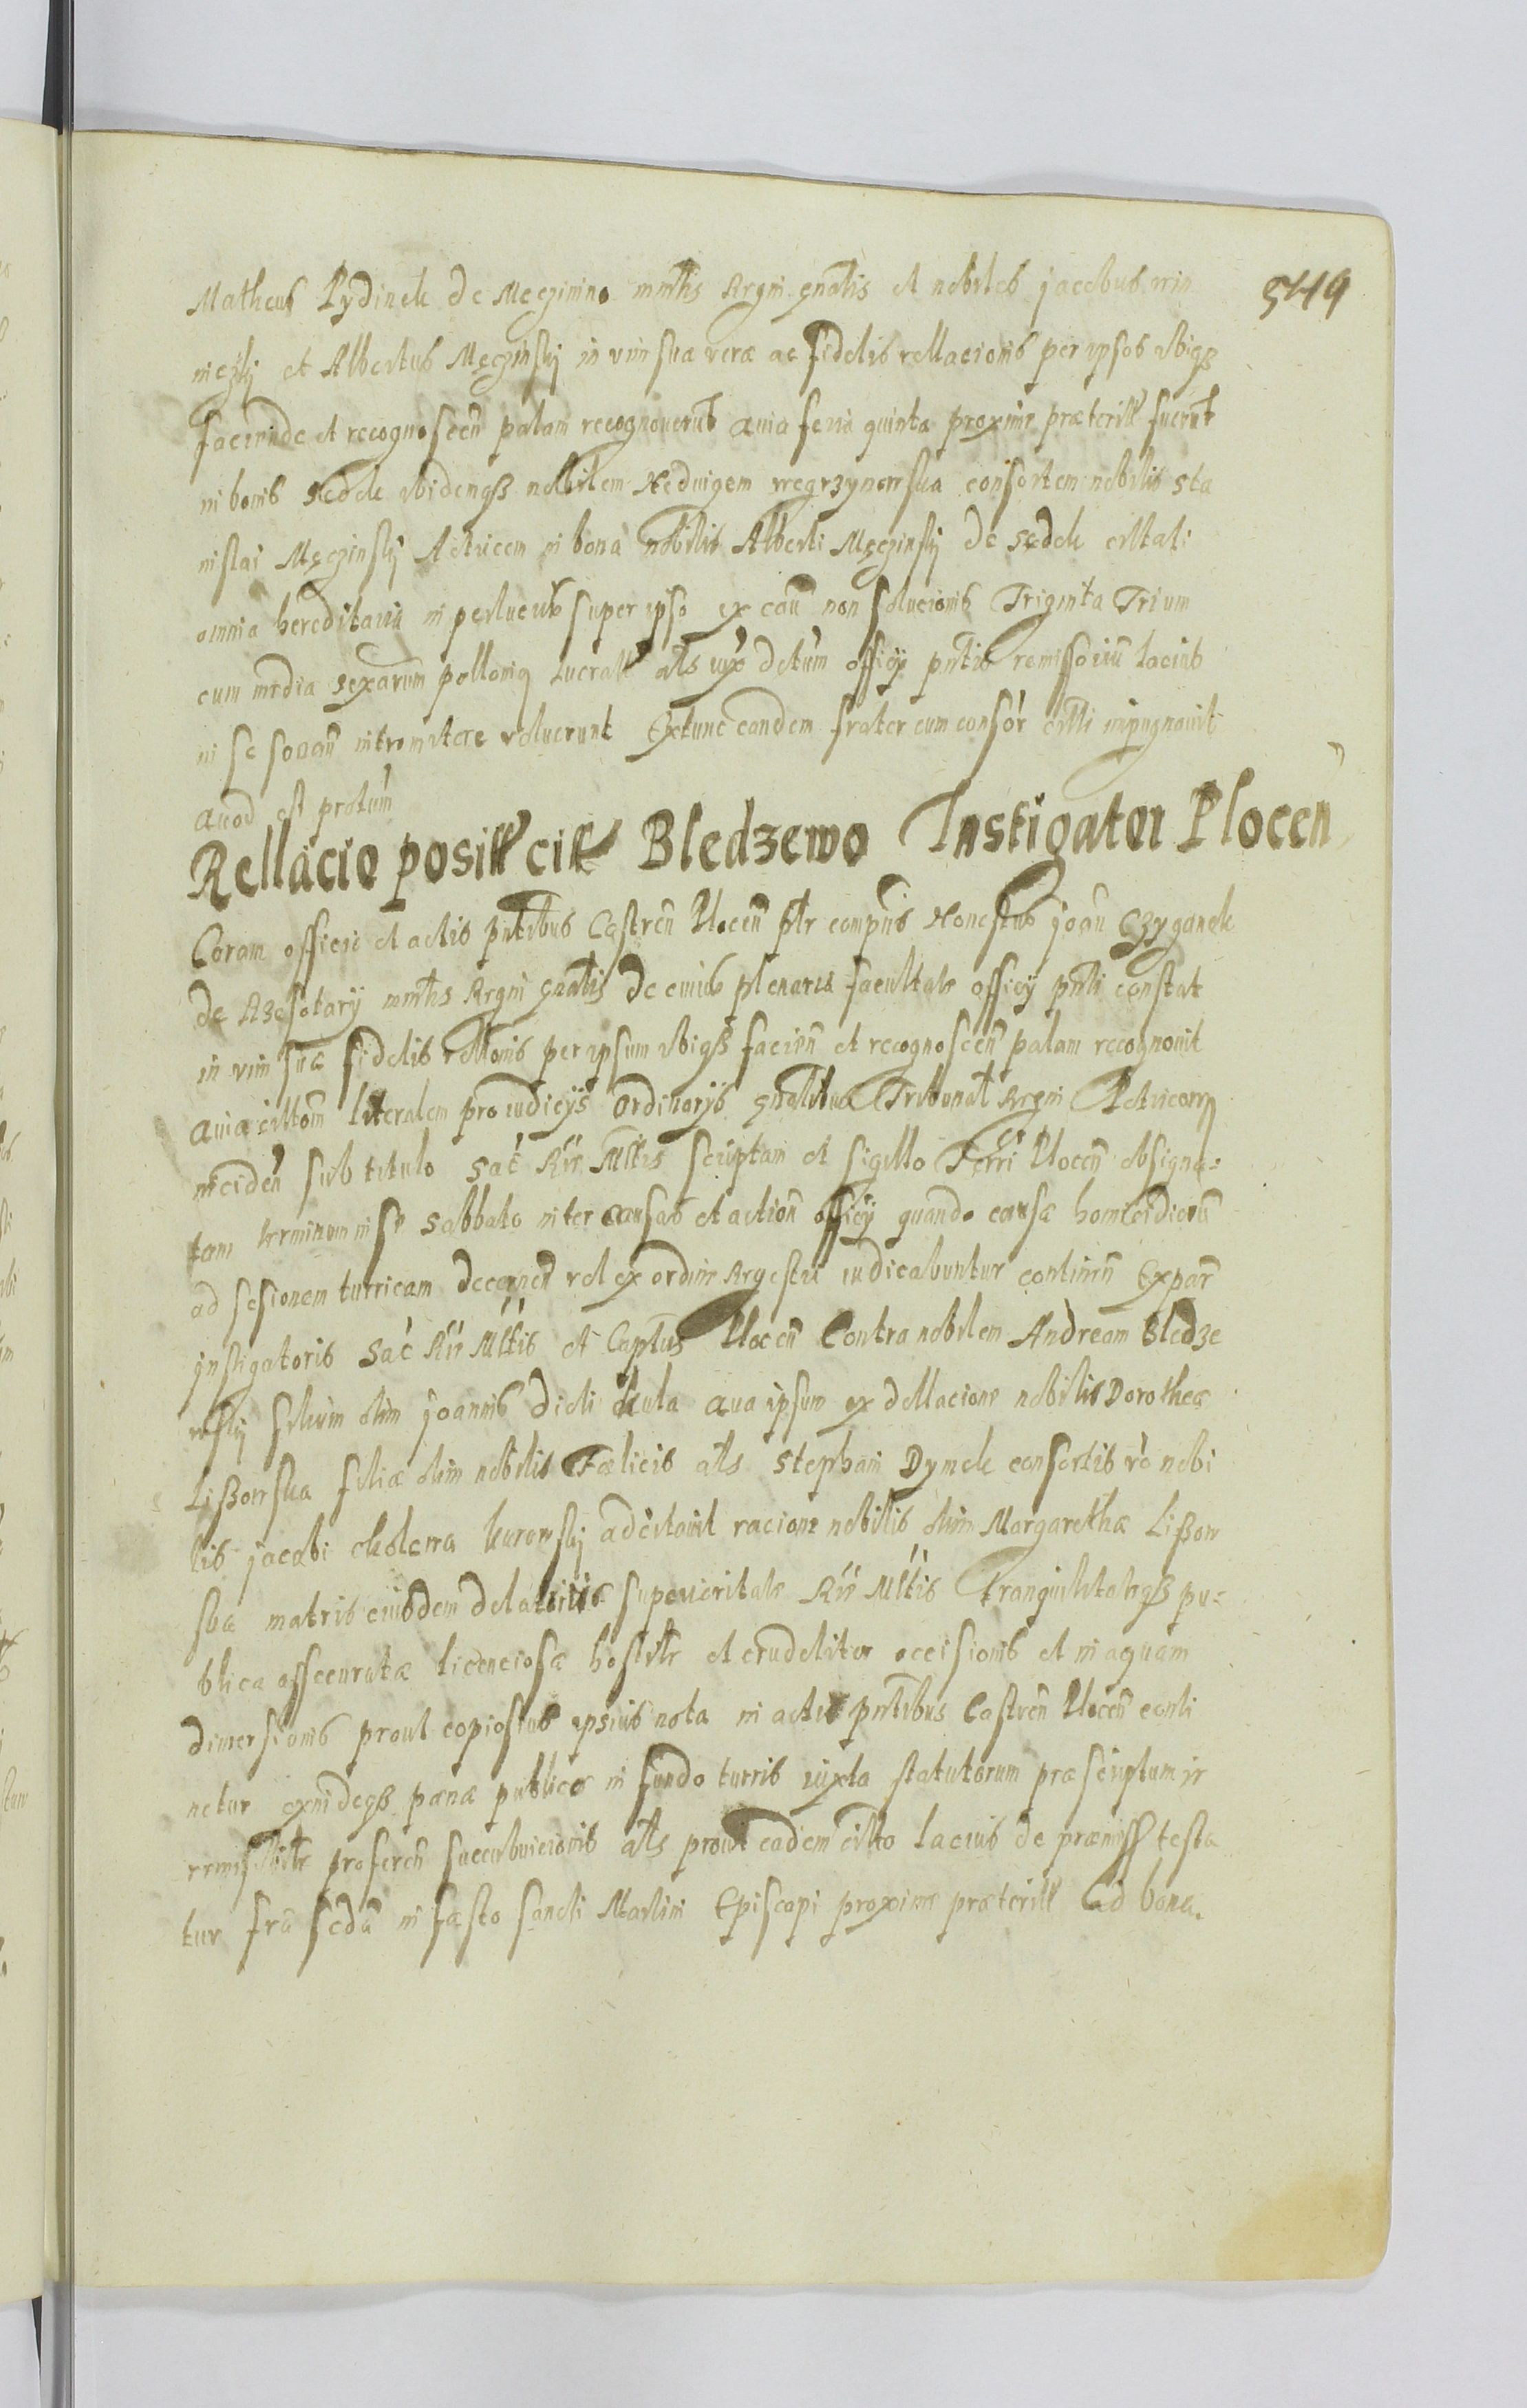 549
Matheus Pydinek de Męczinino mnrlis Regni gnalis et nobiles jacobus win
niczkj et Albertus Męczinskj in vim suæ veræ ac fidelis rellacionis per ipsos vbiqß
faciendæ et recognoscen palam recognoverut Quia feria quinta proxime præterill fuerut
in bonis sedek ibidenqß nobilem Hedvigem wegrzynowska consortem nobilis sta
nislai Męczinskj Actricem in bona nobilis Alberti Męczinskj de sedek citati
omnia hereditaria in perlucris super ipso ex cau non solucionis Triginta Trium
cum media sexarum polloniq lucrall als iux detum officij pntis remissoriu lacius
in se sonan intromitere voluerunt Extunc eandem frater cum consor citti inpugnavit
Quod est protum
Rellacio posill cill Bledzewo Instigator Plocen
Coram officio et actis pntibus Castren Plocen ptr compns Honestus joan Czyganek
de Rzesotary mnrlis Regni gnalis de cuius plenaria facultate officij pnti constat
in vim suæ fidelis rellonis per ipsum vbiqß facien et recognoscen palam recognovit
Quia cittom literalem pro iudicijs ordinarijs gnalibus Tribunal Regni Actricem
inciden sub titulo Sac Rie Mttis scriptam et sigillo Terri Plocen obsigna=
tam terminum in se sabbato inter causas et action officij quando causæ homicidioru
ad sesionem turricam decernen vel ex ordine Regestri iudicabuntur continen Expar
jnstigatoris Sac Rie Mttis et Captus Plocen Contra nobilem Andream Bledze
wskj filium olim joannis dicti kula Qua ipsum ex dellacione nobilis Dorotheæ
Lißowska filiæ olim nobilis Fœlicis als Stephani Dynek consortis vo nobi
lis jacobi cholewa kurowskj adcitavit racione nobilis olim Margarethæ Lißow
ska matris eiusdem delatricis superioritate Rie Mttis Tranquilitateqß pu=
blica assecuratæ licenciosæ hostilr et crudeliter occisionis et in aquam
dimersionis prout copiosius ipsius nota in actis pntibus Castren Plocen conti
netur exindeqß pœnæ publicæ in fundo turris iuxta statutorum præscriptum ir
remisibilr proferen succubuicionis als prout eadem citto lacius de præmiss testa
tur fra seda in fæsto sancti Martini Episcopi proxime præterill Ad bona.